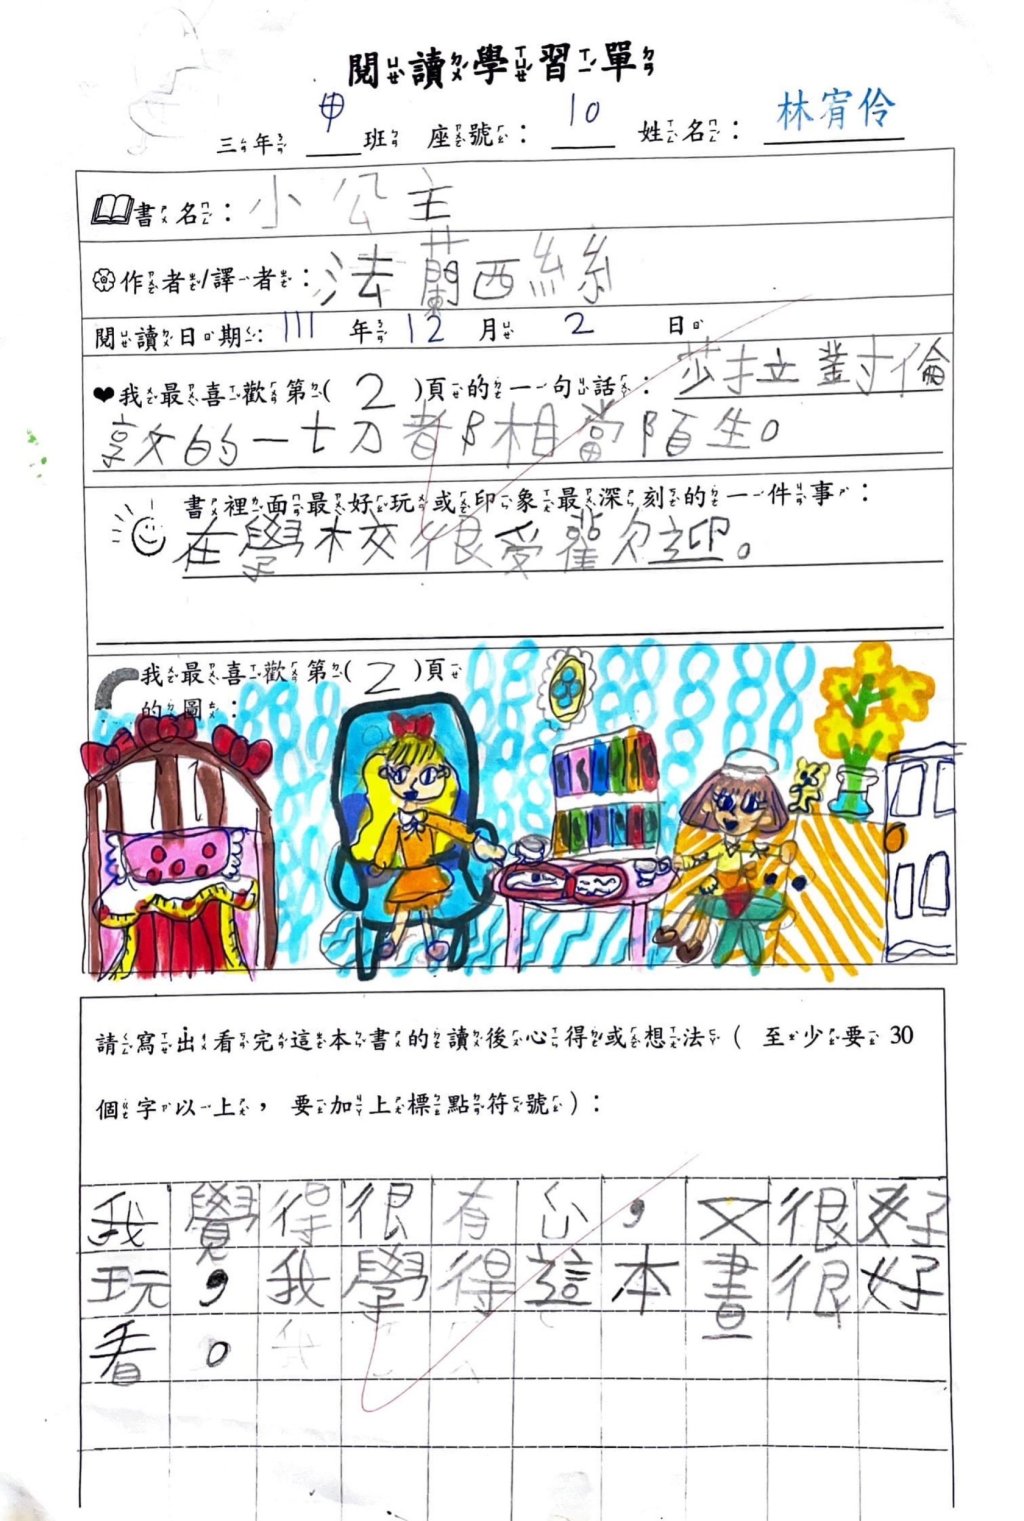 閱讀學習單
三年 甲 班 座號： 10 姓名： 林宥伶
書名： 小公主
作者/譯者： 法蘭西絲
閱讀日期: 111 年 12 月 2 日
我最喜歡第( 2 )頁的一句話： 莎拉對倫
敦的一切都相當陌生。
書裡面最好玩或印象最深刻的一件事：
在學校很受歡迎。
我最喜歡第( 2 )頁
的圖：
請寫出看完這本書的讀後心得或想法( 至少要 30
個字以上， 要加上標點符號)：
我覺得很有心，又很好
玩，我學得這本書很好
看。